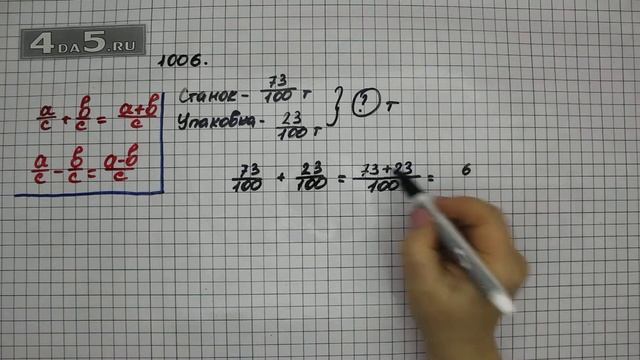 4DA5.RU
1006.
a/c + b/c = a+b/c
a/c - b/c = a-b/c
Станок - 73/100 т
Упаковка - 23/100 т
? т
73/100 + 23/100 = 73+23/100 = 6